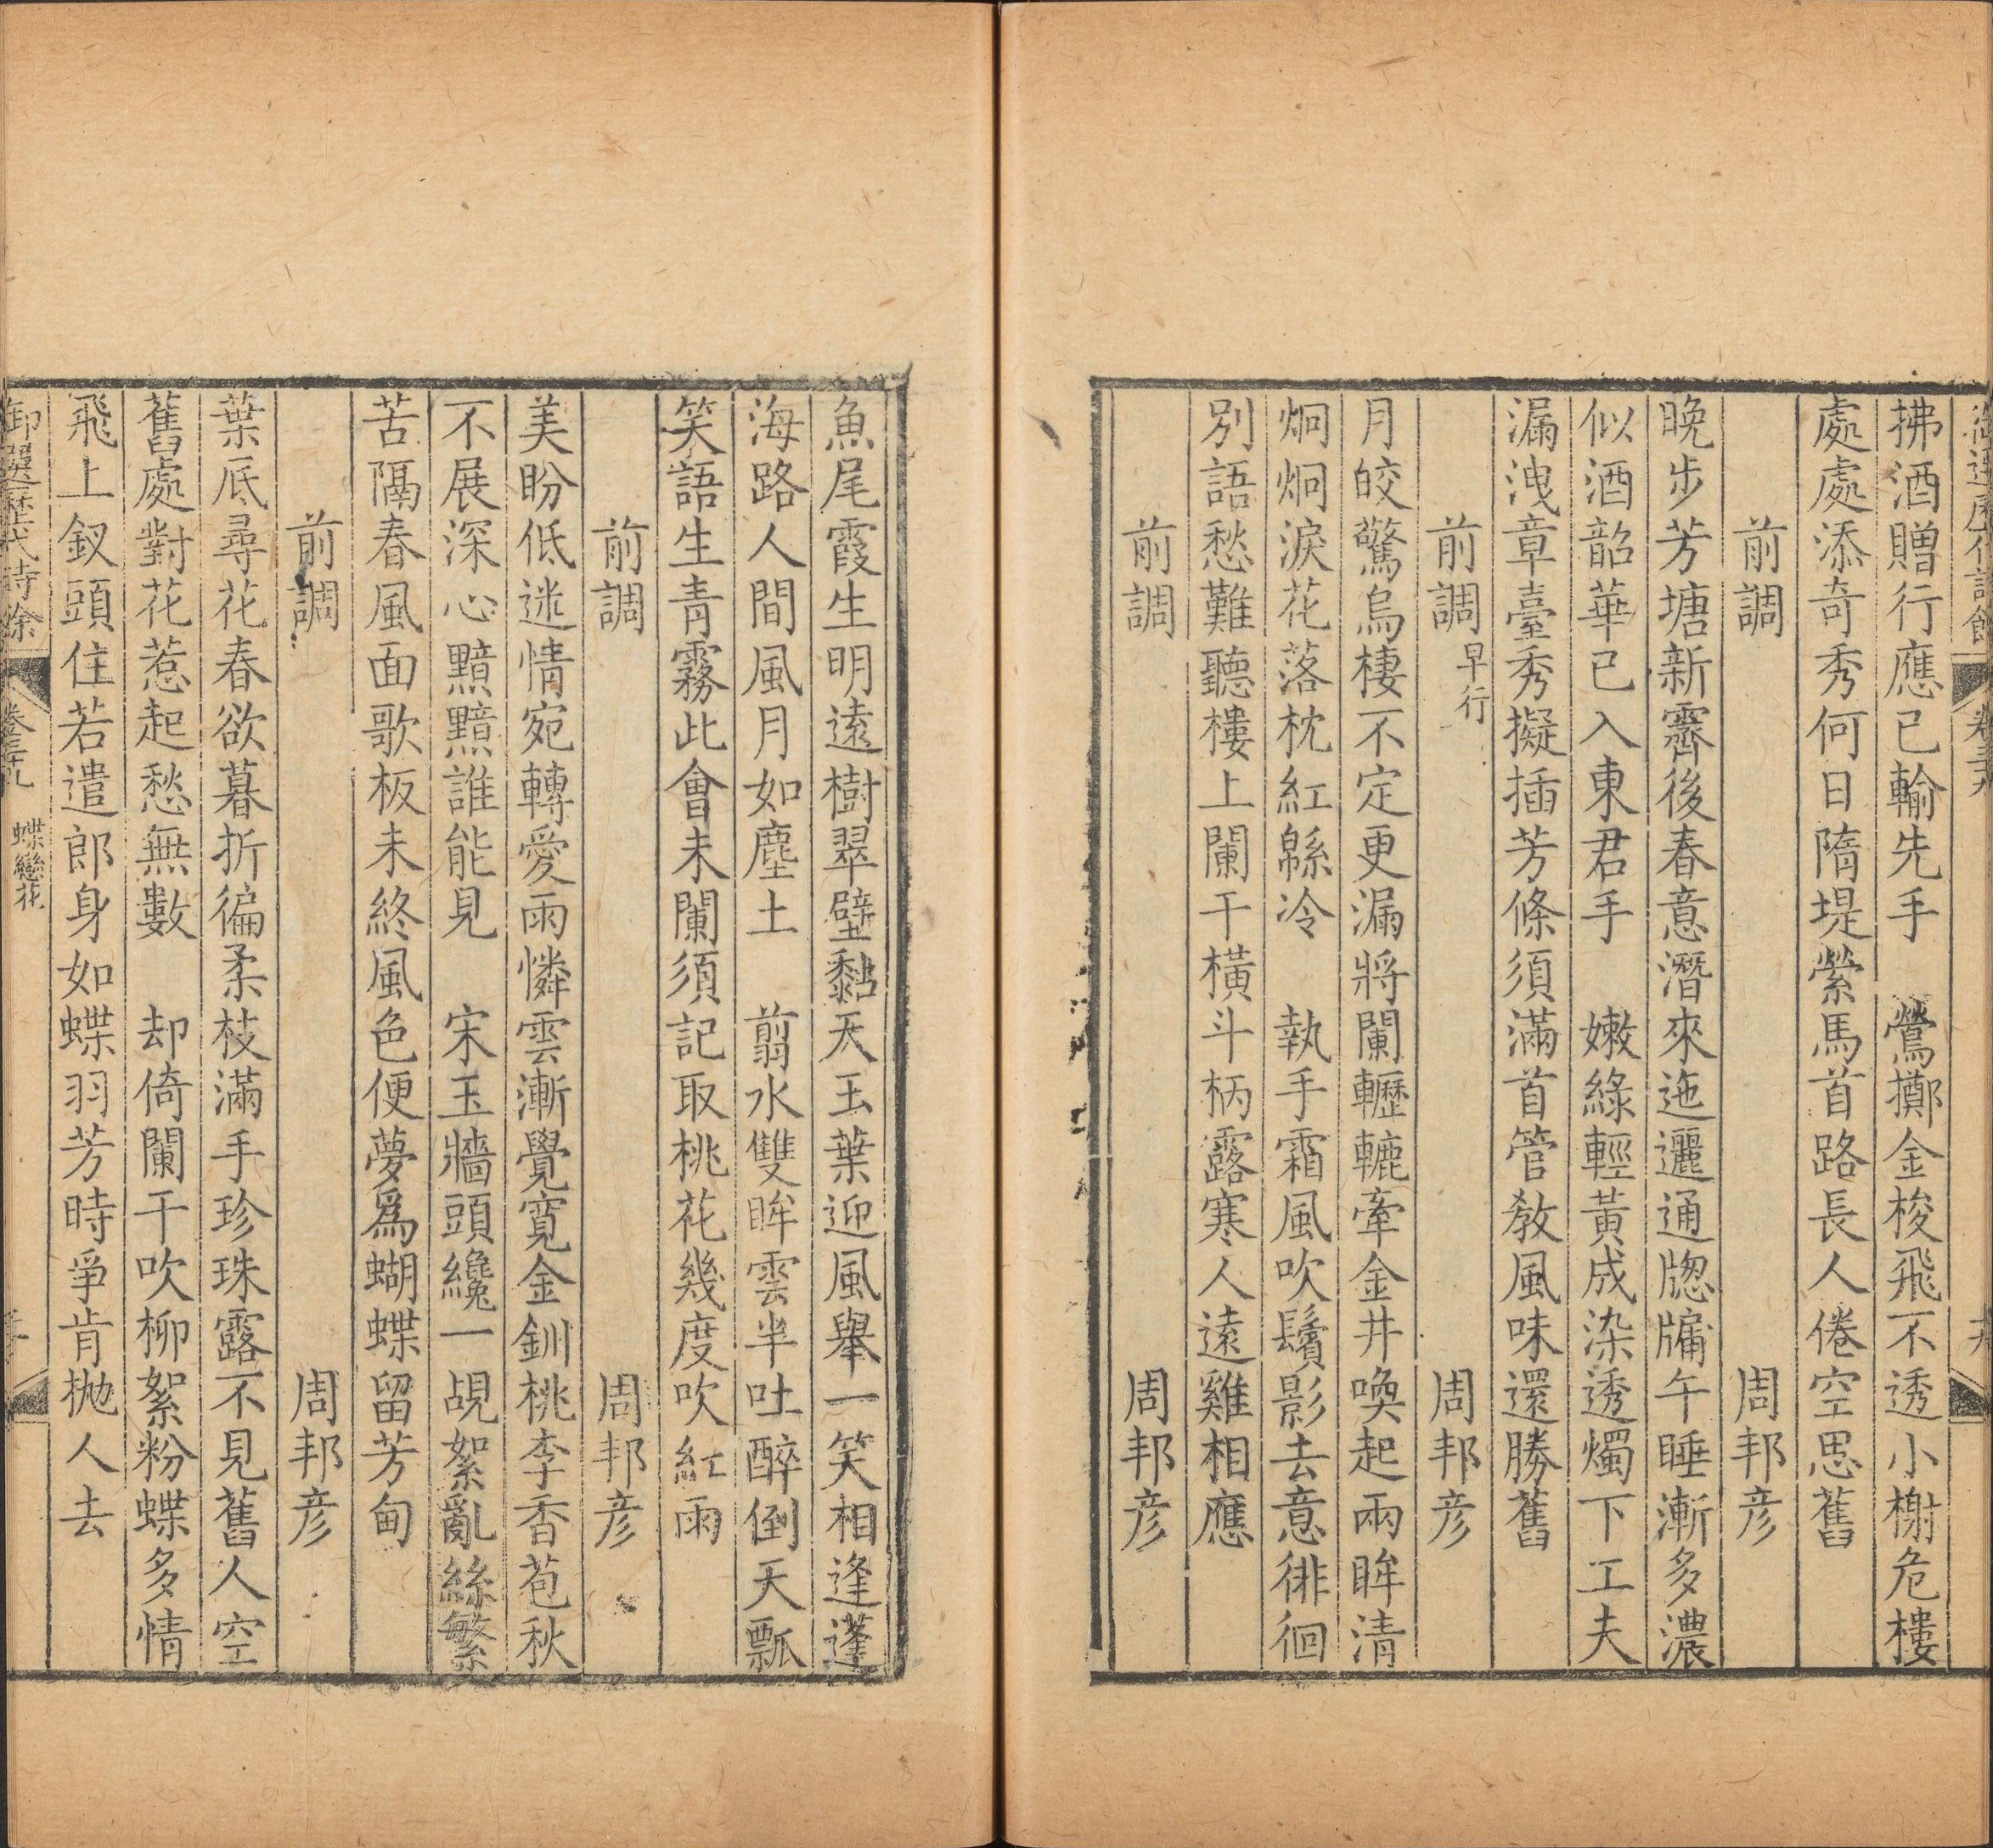 御選歷代詩餘 卷三十九
拂酒贈行應已輸先手 鶯擲金梭飛不透小榭危樓
處處添奇秀何日隋堤縈馬首路長人倦空思舊
前調 周邦彦
晚步芳塘新霽後春意潛來迤邐通牕牖午睡漸多濃
似酒韶華已入東君手 嫩綠輕黃成染透燭下工夫
漏洩章臺秀擬插芳條須滿首管教風味還勝舊
前調 早行 周邦彦
月皎驚烏棲不定更漏將闌轣轆牽金井喚起兩眸清
炯炯淚花落枕紅緜冷 執手霜風吹鬢影去意徘徊
別語愁難聽樓上闌干橫斗柄露寒人遠雞相應
前調 周邦彦
魚尾霞生明遠樹翠壁黏天玉葉迎風舉一笑相逢蓬
海路人間風月如塵土 翦水雙眸雲半吐醉倒天瓢
笑語生青霧此會未闌須記取桃花幾度吹紅雨
前調 周邦彦
美盼低迷情宛轉愛雨憐雲漸覺寬金釧桃李香苞秋
不展深心黯黯誰能見 宋玉牆頭纔一覘絮亂絲繁
苦隔春風面歌板未終風色便夢爲蝴蝶留芳甸
前調 周邦彦
葉底尋花春欲暮折徧柔枝滿手珍珠露不見舊人空
舊處對花惹起愁無數 却倚闌干吹柳絮粉蝶多情
飛上釵頭住若遣郎身如蝶羽芳時爭肯拋人去
御選歷代詩餘 卷三十九 蝶戀花